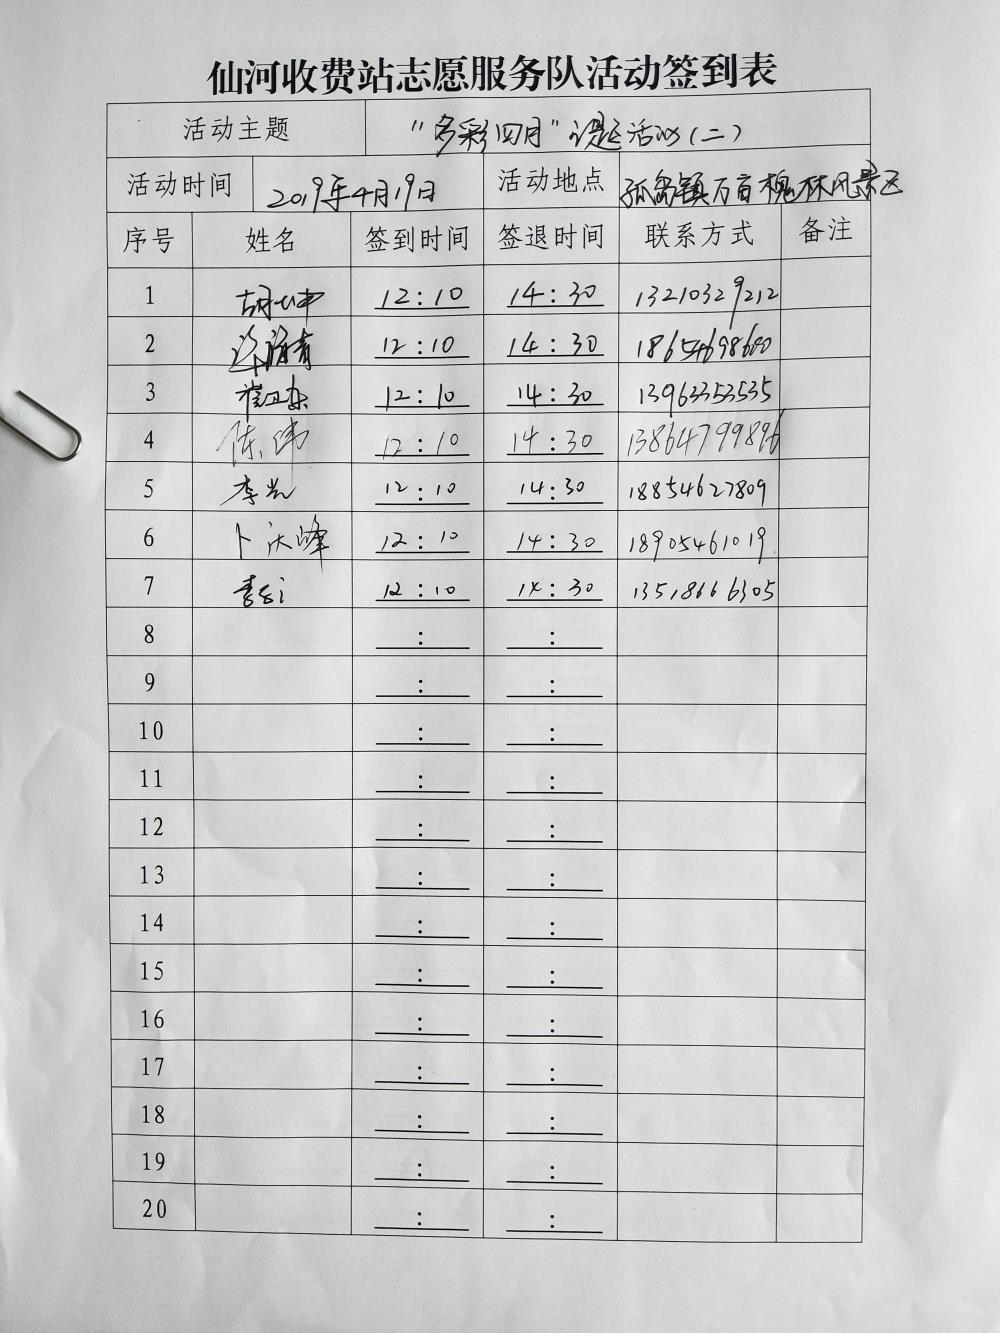 仙河收费站志愿服务队活动签到表
活动主题 "多彩四月"主题活动(二)
活动时间 2019年4月19日 活动地点 孤岛镇万亩槐林风景区
序号 姓名 签到时间 签退时间 联系方式 备注
1 12:10 14:30 13210329212
2 12:10 14:30 18654698680
3 崔卫东 12:10 14:30 13963353535
4 陈伟 12:10 14:30 13864799896
5 李凯 12:10 14:30 18854627809
6 卜庆峰 12:10 14:30 18905461019
7 12:10 14:30 13518666305
8 : :
9 : :
10 : :
11 : :
12 : :
13 : :
14 : :
15 : :
16 : :
17 : :
18 : :
19 : :
20 : :